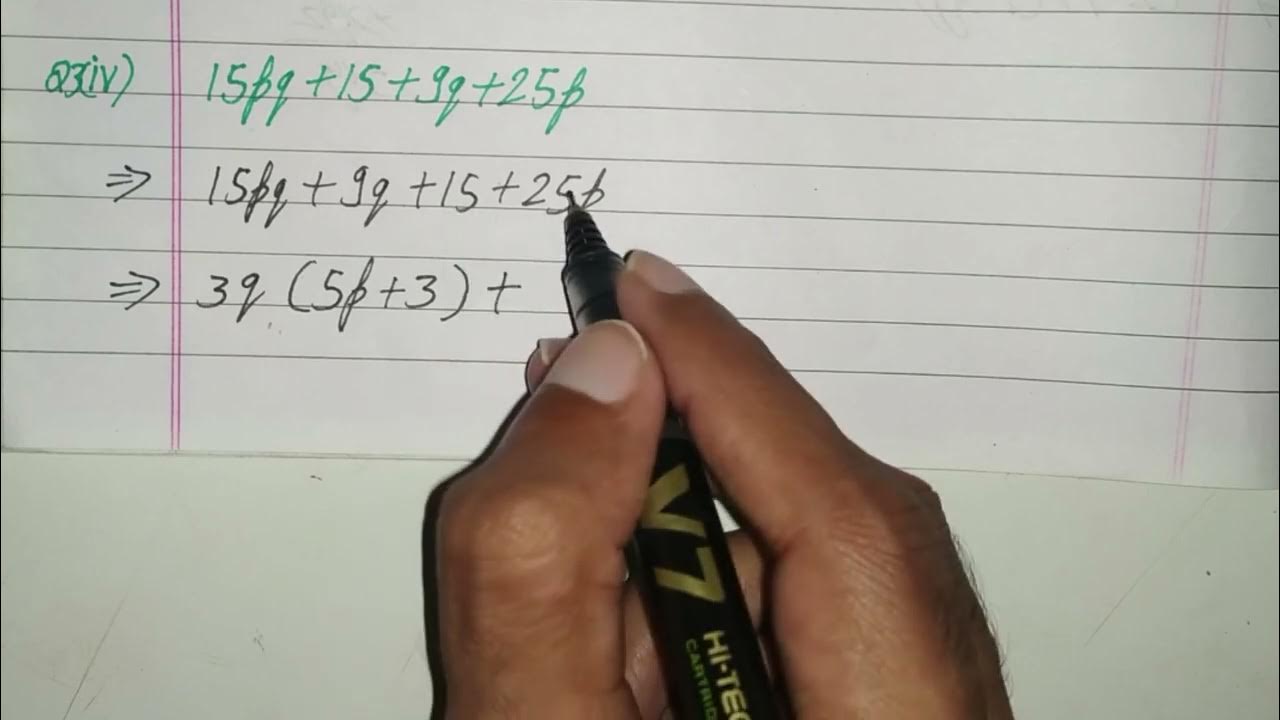 Q3(iv) 15pq + 15 + 9q + 25p
⇒ 15pq + 9q + 15 + 25p
⇒ 3q (5p + 3) +
V7
HI-TEC
CARTRID